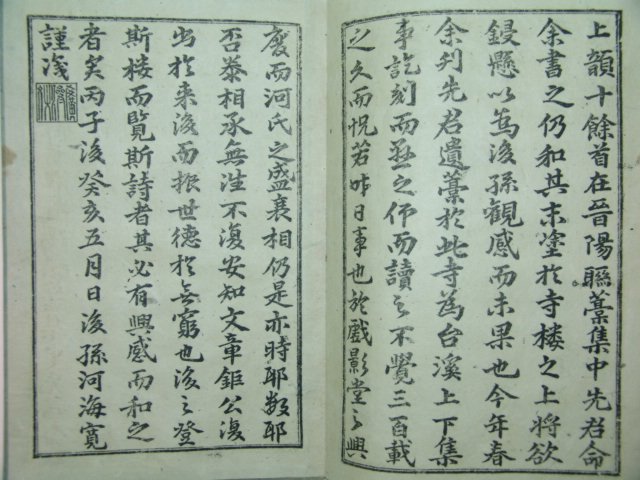 上韻十餘首在晉陽聯藁集中先君命
余書之仍和其末塗於寺楼之上將欲
鋟懸以為後孫觀感而未果也今年春
余刊先君遺藁於此寺為台溪上下集
事訖刻而懸之仰而讀之不覺三百載
之久而怳若昨日事也於戲影堂之興
廢而河氏之盛衰相仍是亦時耶數耶
否泰相承無往不復安知文章鉅公復
出於来後而振世德於無窮也後之登
斯楼而覽斯詩者其必有興感而和之
者矣丙子後癸亥五月日後孫河海寬
謹識